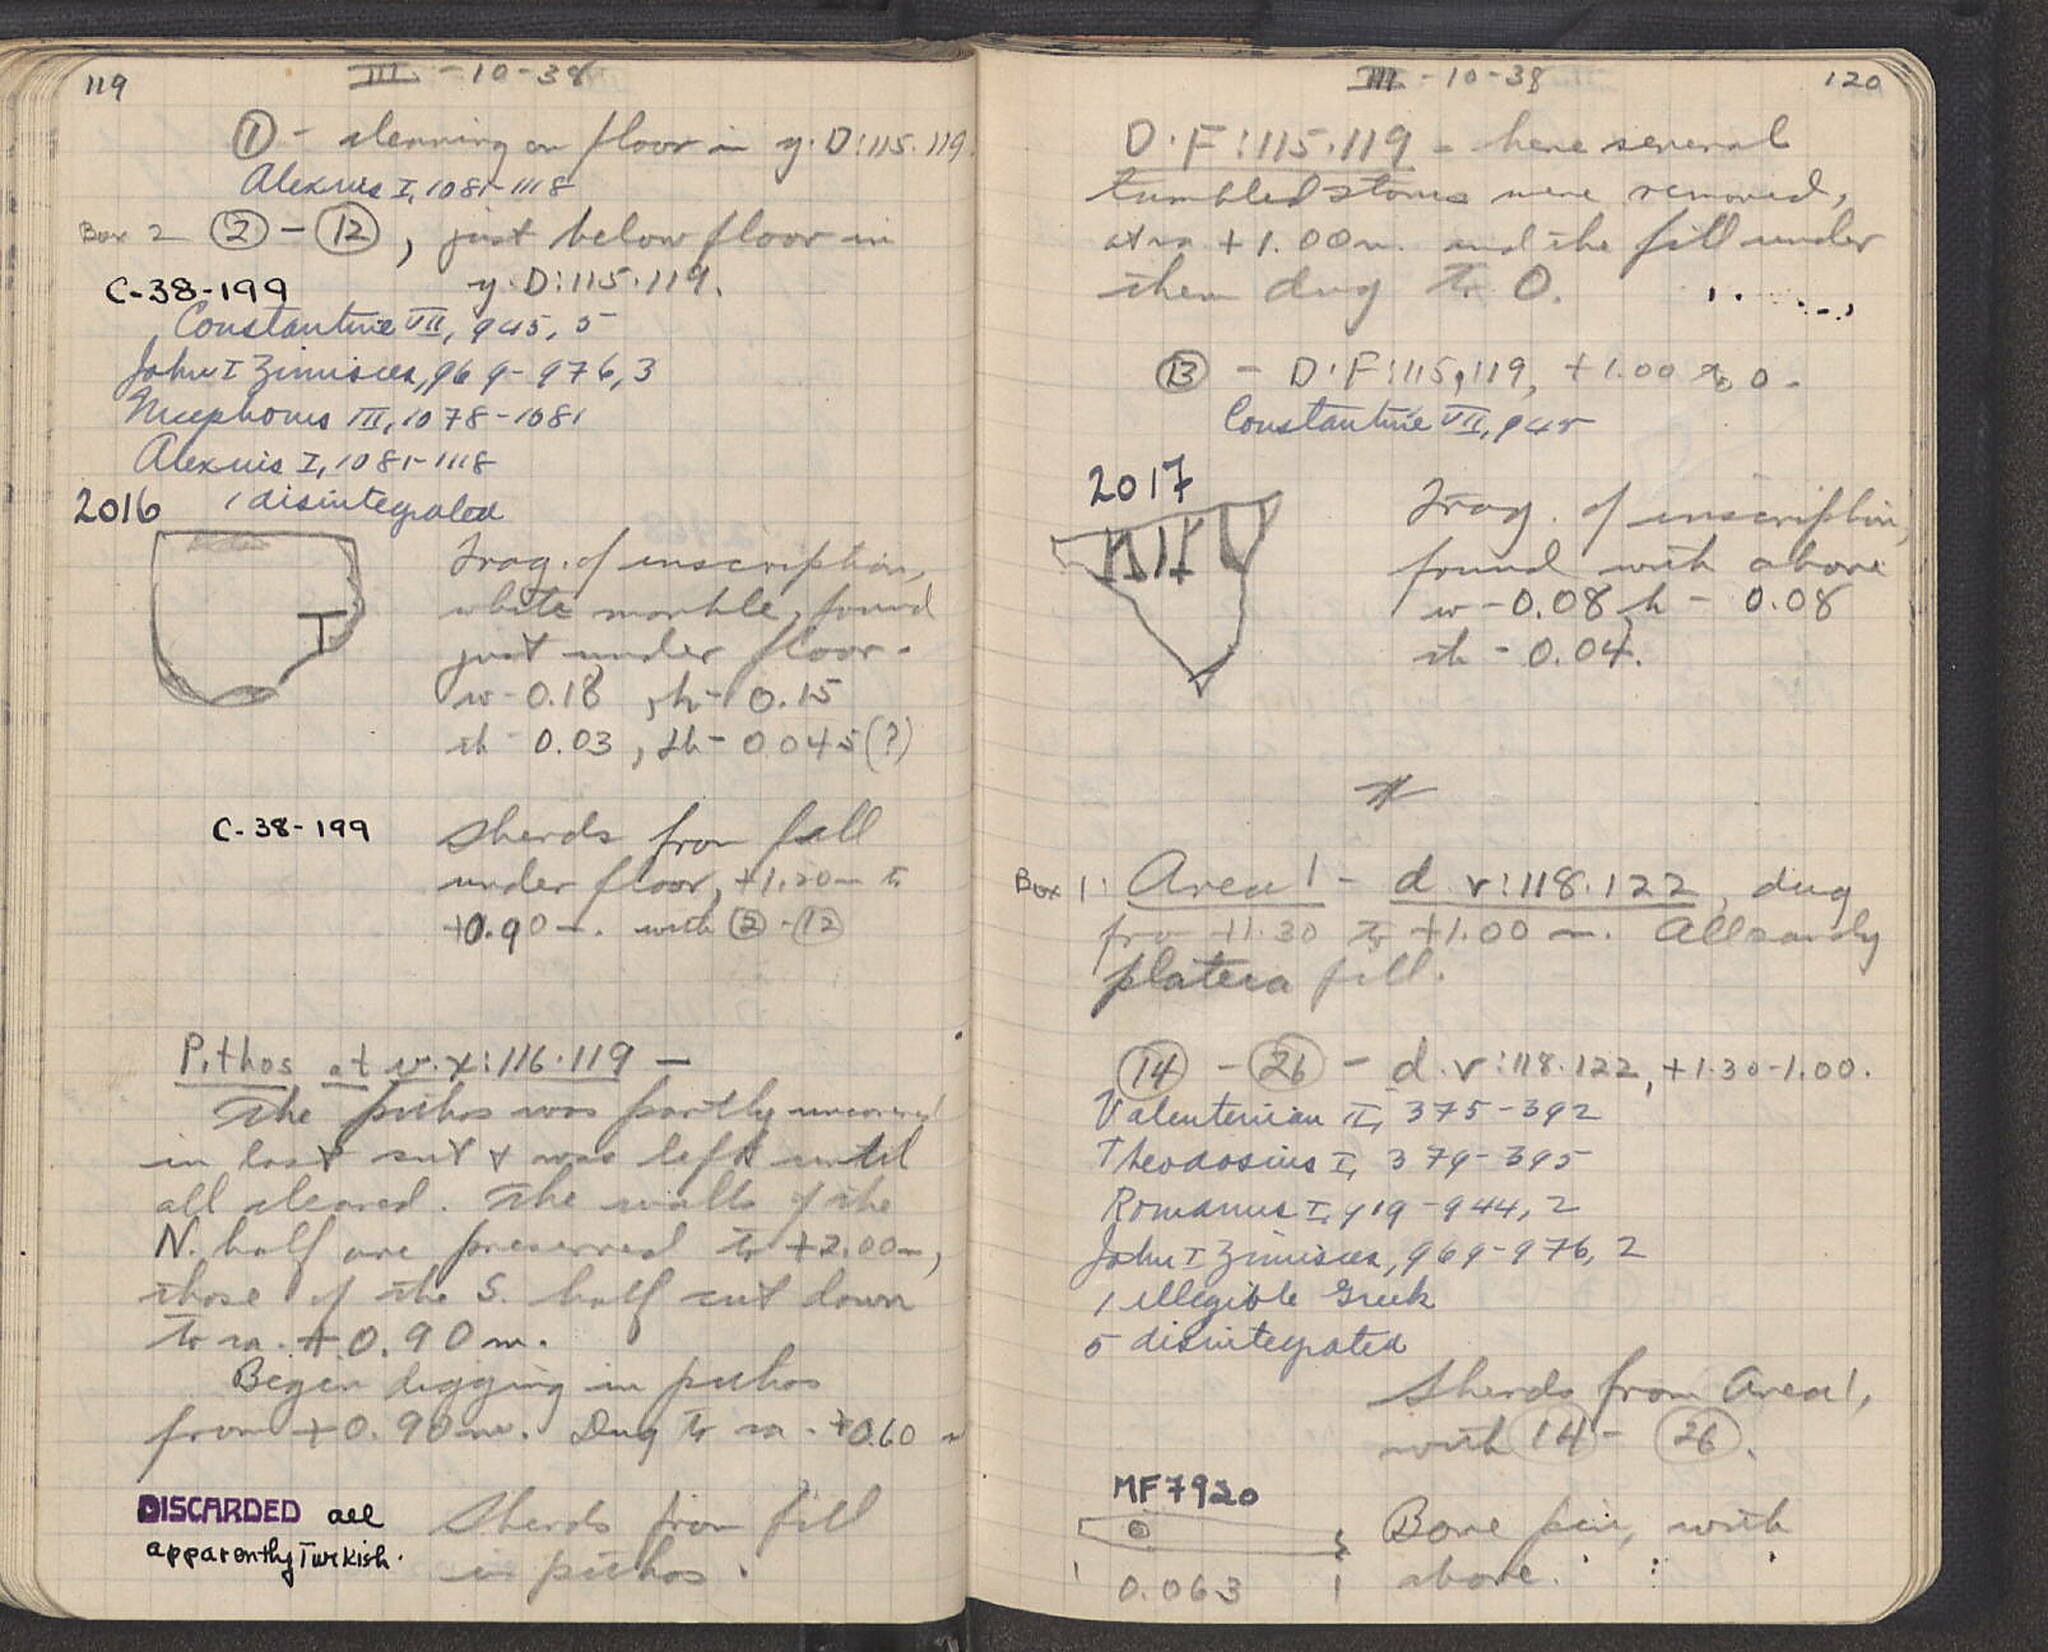 119
III - 10 - 38
① - cleaning on floor in y.D:115.119.
Alexius I, 1081-1118
Box 2 ② - ⑫, just below floor in
C-38-199 y.D:115.119.
Constantine VII, 945, 5
John I Zimisces, 969-976, 3
Nicephorus III, 1078-1081
Alexuis I, 1081-1118
1 disintegrated
2016
T
Frag. of inscription,
white marble, found
just under floor.
w - 0.18, h - 0.15
th - 0.03, lh - 0.045(?)
C-38-199 Sherds from fill
under floor, +1.20m to
+0.90m. with ② - ⑫
Pithos at w.x:116.119 -
The pithos was partly uncovered
in last cut + was left until
all cleared. The walls of the
N. half are preserved to +2.00m,
those of the S. half cut down
to ca. +0.90m.
Began digging in pithos
from +0.90m. Dug to ca. +0.60 m
DISCARDED all
apparently Turkish.
Sherds from fill
in pithos.
III - 10 - 38
120
D.F:115.119 - here several
tumbled stones were removed,
at ca +1.00m. and the fill under
them dug to 0.
⑬ - D.F:115,119, +1.00 to 0 -
Constantine VII, 945
2017
Frag. of inscription,
found with above
w - 0.08, h - 0.08
th - 0.04.
Box 1: Area 1 - d.v:118.122, dug
from +1.30 to +1.00 m. All sandy
plateia fill.
⑭ - ㉖ - d.v:118.122, +1.30-1.00.
Valentenian II, 375-392
Theodosius I, 379-395
Romanus I, 919-944, 2
John I Zimisces, 969-976, 2
1 illegible Greek
5 disintegrated
Sherds from Area 1,
with ⑭ - ㉖.
MF7920
0.063
Bone pin, with
above.